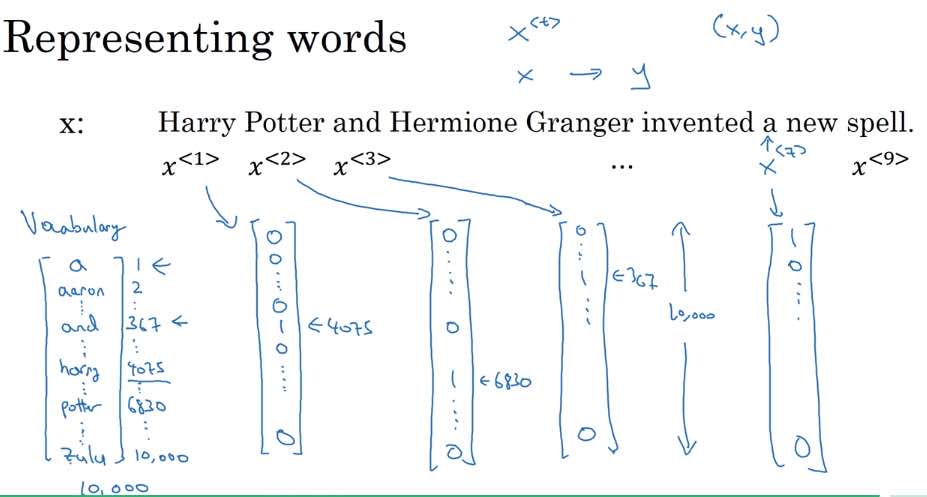 Representing words
x<t> (x,y)
x → y
x: Harry Potter and Hermione Granger invented a new spell.
x<1> x<2> x<3> ... x<7> x<9>
Vocabulary
a 1 ←
aaron 2
and 367 ←
harry 4075
potter 6830
zulu 10,000
10,000
0
0
0
1 ← 4075
0
0
0
0
1 ← 6830
0
0
1 ← 367
0
10,000
1
0
0